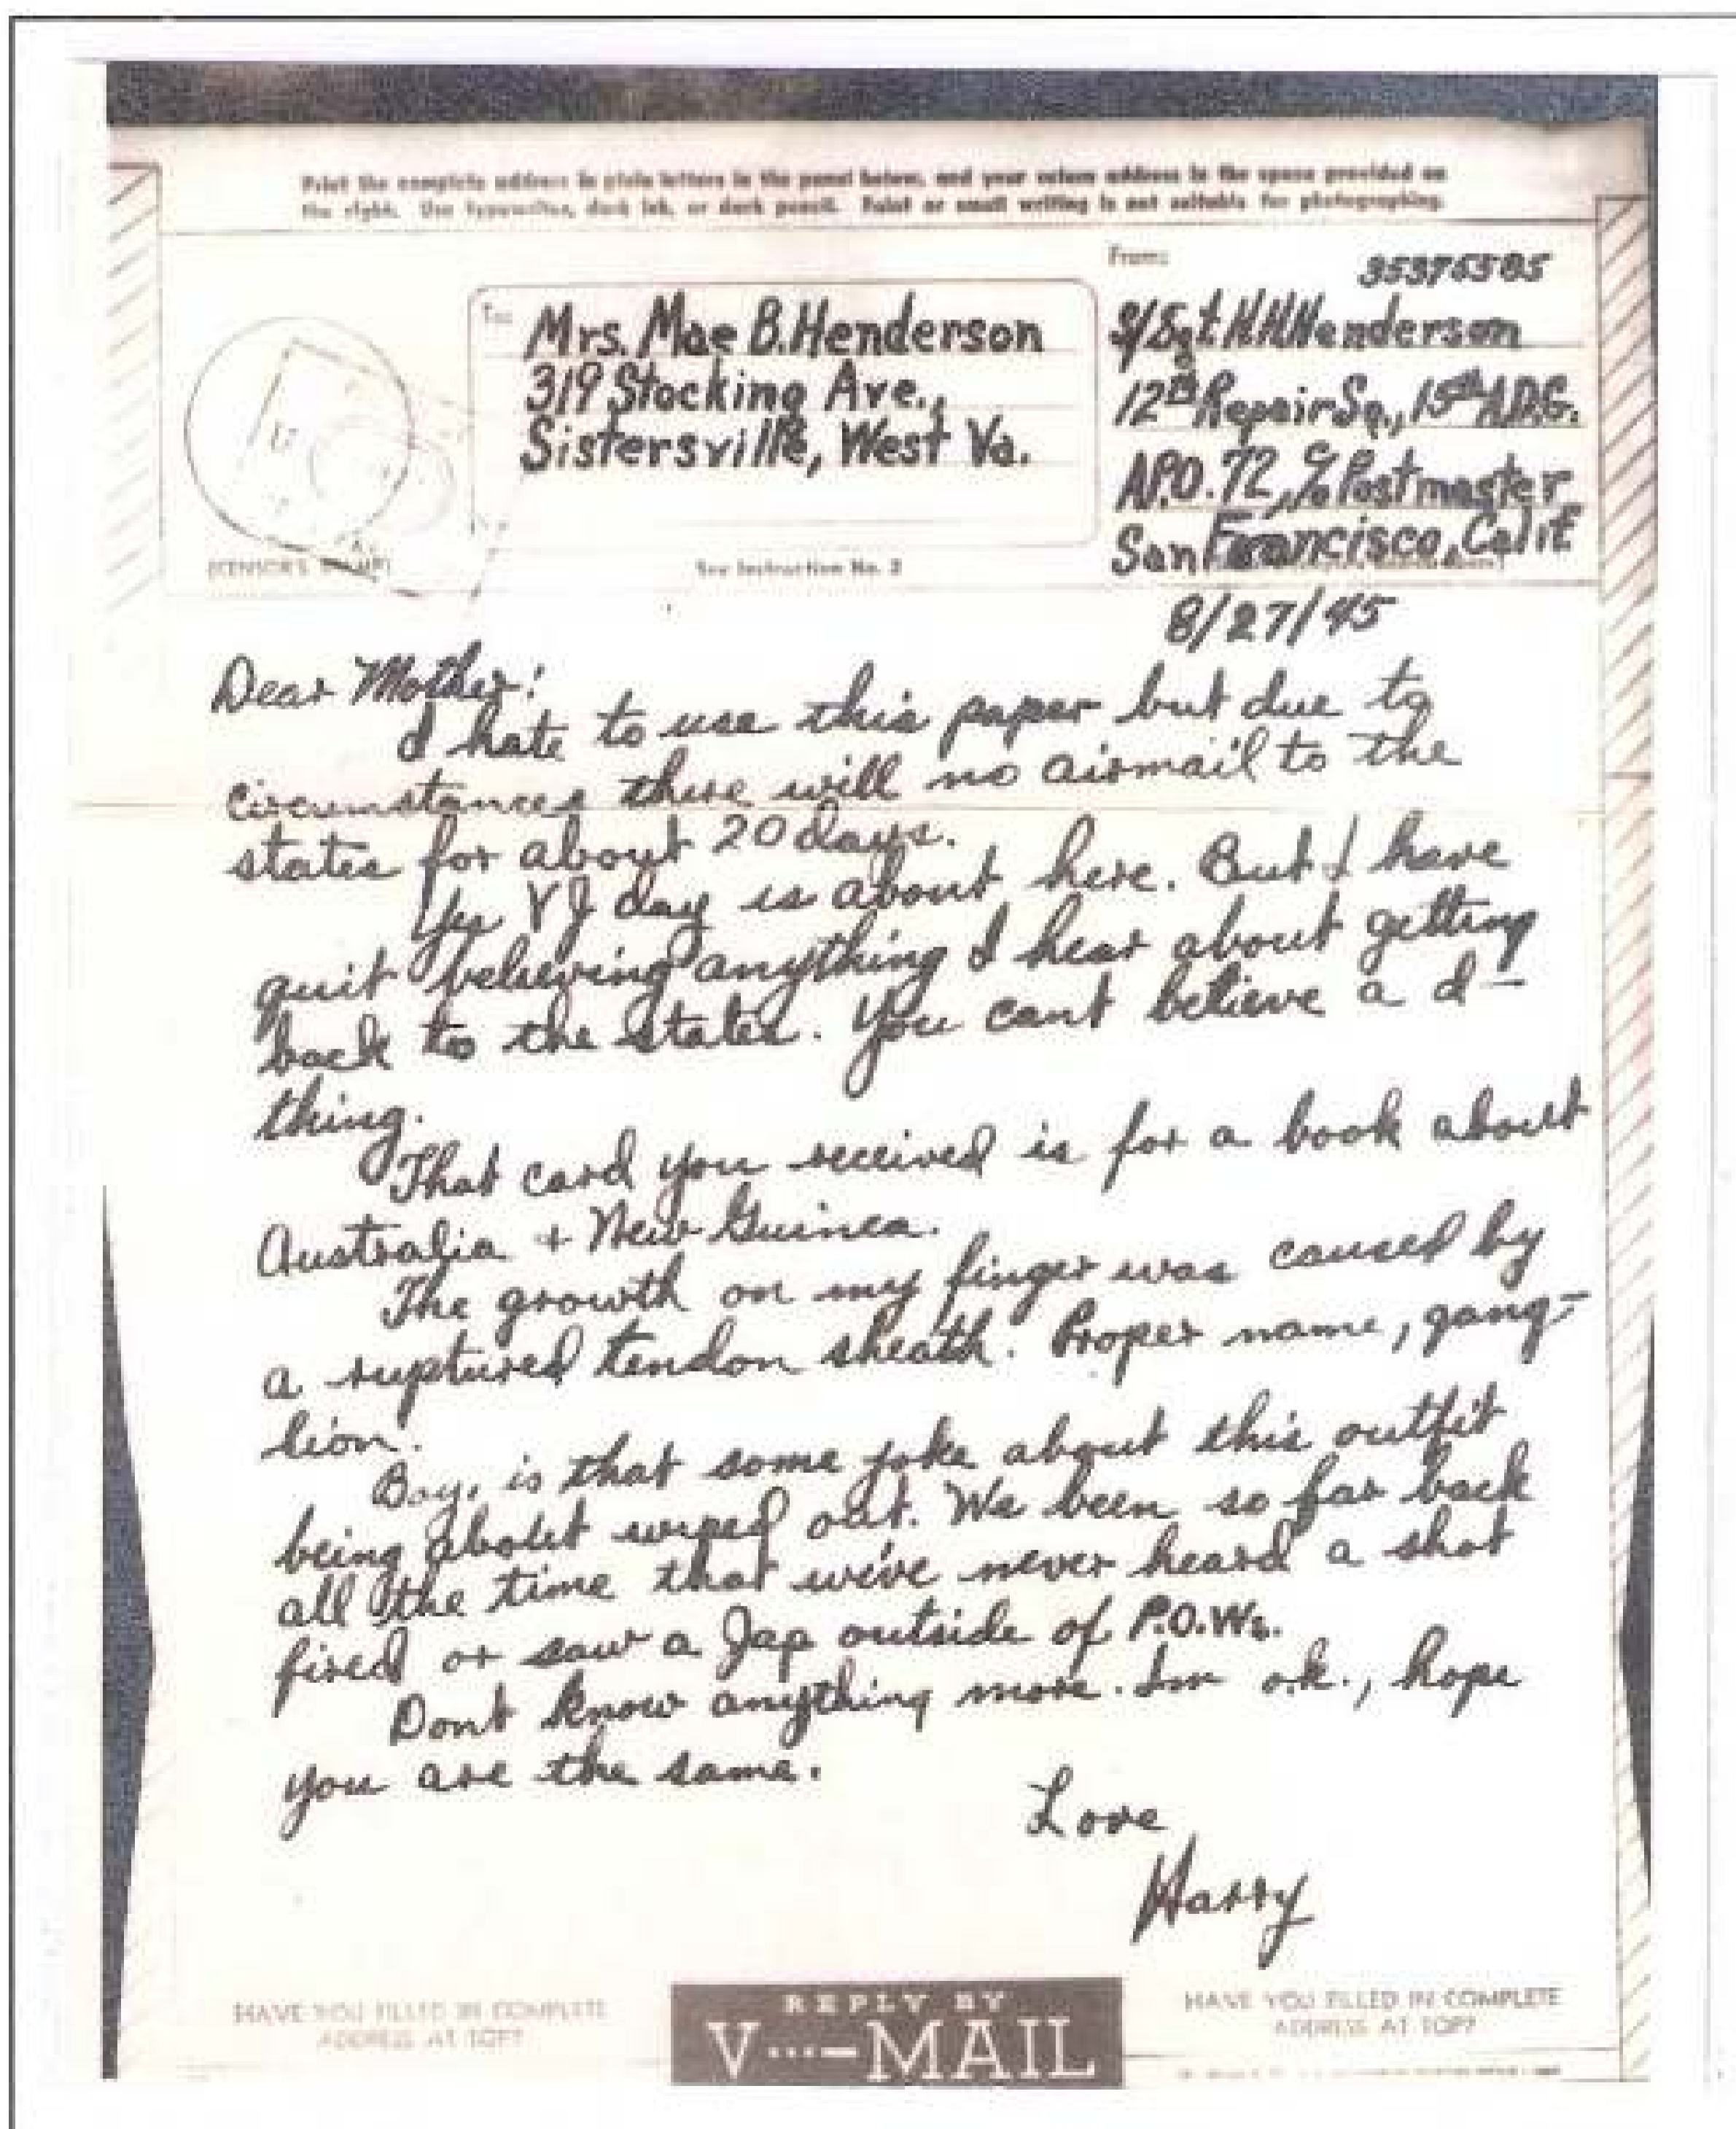 Print the complete address in plain letters in the panel below, and your return address in the space provided on
the right. Use typewriter, dark ink, or dark pencil. Faint or small writing is not suitable for photographing.
From:
35376585
To:
Mrs. Mae B. Henderson
319 Stocking Ave.,
Sistersville, West Va.
S/Sgt. H H Henderson
12th Repair Sq., 15th A.D.G.
A.P.O. 72, c/o Postmaster
San Francisco, Calif
(CENSOR'S STAMP)
See Instruction No. 2
8/27/45
Dear Mother:
I hate to use this paper but due to
circumstances there will no airmail to the
states for about 20 days.
Yes VJ day is about here. But I have
quit believing anything I hear about getting
back to the states. You cant believe a d—
thing.
That card you received is for a book about
Australia + New Guinea.
The growth on my finger was caused by
a ruptured tendon sheath. Proper name, gang-
lion.
Boy, is that some joke about this outfit
being about wiped out. We been so far back
all the time that we've never heard a shot
fired or saw a Jap outside of P.O.Ws.
Dont know anything more. Im o.k., hope
you are the same.
Love
Harry
HAVE YOU FILLED IN COMPLETE
ADDRESS AT TOP?
REPLY BY
V···—MAIL
HAVE YOU FILLED IN COMPLETE
ADDRESS AT TOP?